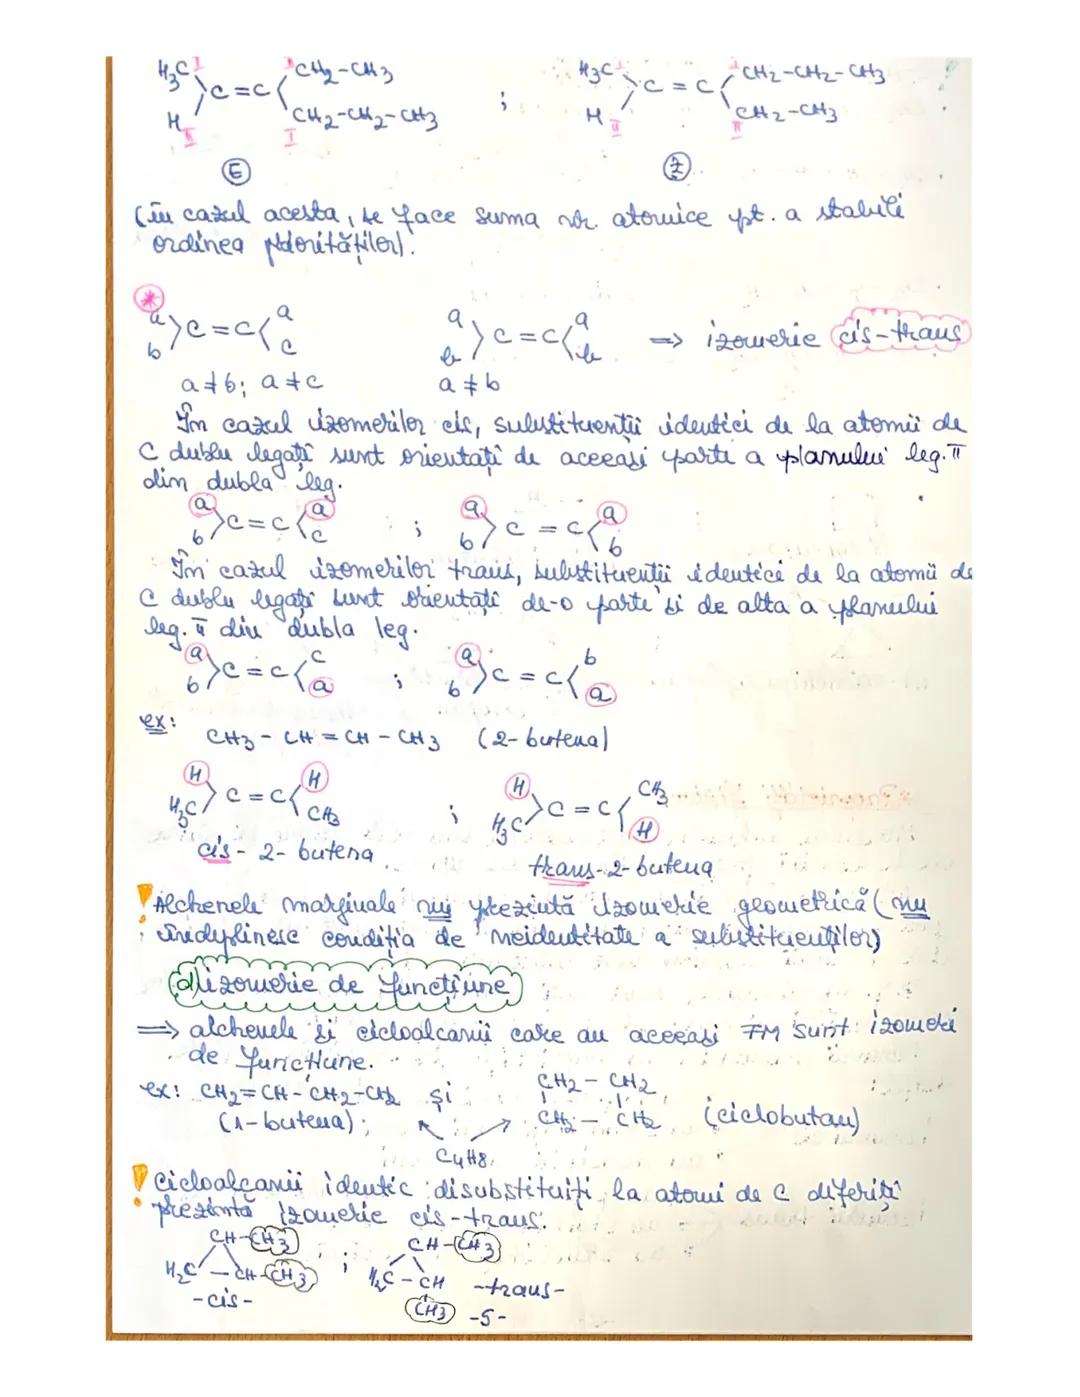 H3C I I CH2-CH3
C=C
H II I CH2-CH2-CH3
;
H3C I I CH2-CH2-CH3
C=C
H II II CH2-CH3
E
Z
(în cazul acesta, se face suma nr. atomice pt. a stabili
ordinea priorităților).
*
a a
C=C
b c
a a
C=C
b b
=> izomerie cis-trans
a≠b; a≠c
a≠b
În cazul izomerilor cis, substituenții identici de la atomii de
C dublu legați sunt orientați de aceeași parte a planului leg. π
din dubla leg.
a a
C=C
b c
;
a a
C=C
b b
În cazul izomerilor trans, substituenții identici de la atomii de
C dublu legați sunt orientați de-o parte și de alta a planului
leg. π din dubla leg.
a c
C=C
b a
;
a b
C=C
b a
ex:
CH3 - CH = CH - CH3 (2-butena)
H H
C=C
H3C CH3
;
H CH3
C=C
H3C H
cis-2-butena
trans-2-butena
! Alchenele marginale nu prezintă izomerie geometrică (nu
îndeplinesc condiția de neidentitate a substituenților)
d) izomerie de funcțiune
=> alchenele și cicloalcanii care au aceeași FM sunt izomeri
de funcțiune.
ex: CH2=CH-CH2-CH3 și
(1-butena);
CH2 - CH2
CH2 - CH2 (ciclobutan)
C4H8
! Cicloalcanii identic disubstituiți la atomi de C diferiți
prezintă izomerie cis-trans.
CH-CH3
H2C - CH-CH3
-cis-
;
CH-CH3
H2C - CH -trans-
CH3
-5-